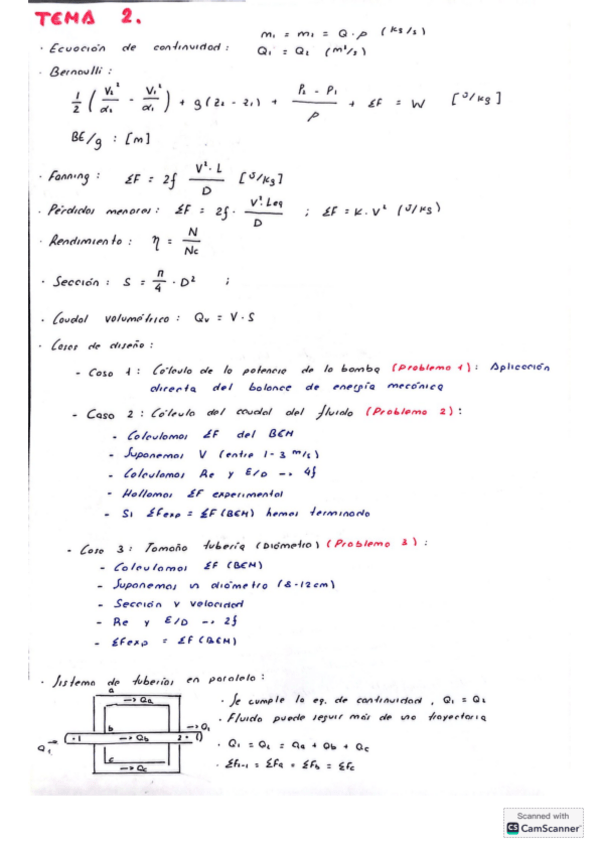 TEMA 2.
· Ecuación de continuidad: m₁ = m₂ = Q·ρ (kg/s)
Q₁ = Q₂ (m³/s)
· Bernoulli:
1/2 (V₂²/α₂ - V₁²/α₁) + g(z₂ - z₁) + (P₂ - P₁)/ρ + ΣF = W [J/kg]
BE/g : [m]
· Fanning: ΣF = 2f V²·L/D [J/kg]
· Pérdidas menores: ΣF = 2f · V²·Leq/D ; ΣF = K·V² (J/kg)
· Rendimiento: η = N/Nc
· Sección: S = π/4 · D² ;
· Caudal volumétrico: Qv = V·S
· Casos de diseño:
- Caso 1: Cálculo de la potencia de la bomba (Problema 1): Aplicación
directa del balance de energía mecánica
- Caso 2: Cálculo del caudal del fluido (Problema 2):
- Calculamos ΣF del BEM
- Suponemos V (entre 1-3 m/s)
- Calculamos Re y E/D --> 4f
- Hallamos ΣF experimental
- Si ΣFexp = ΣF(BEM) hemos terminado
- Caso 3: Tamaño tubería (Diámetro) (Problema 3):
- Calculamos ΣF (BEM)
- Suponemos un diámetro (8-12cm)
- Sección y velocidad
- Re y E/D --> 2f
- ΣFexp = ΣF(BEM)
· Sistema de tuberías en paralelo:
a
→ Qa
b
→ Qb
c
→ Qc
Q₁
· 1
2 ·
→ Q₂
· Se cumple la eq. de continuidad, Q₁ = Q₂
· Fluido puede seguir más de una trayectoria
· Q₁ = Q₂ = Qa + Qb + Qc
· ΣF₁₋₂ = ΣFa = ΣFb = ΣFc
Scanned with
CS CamScanner